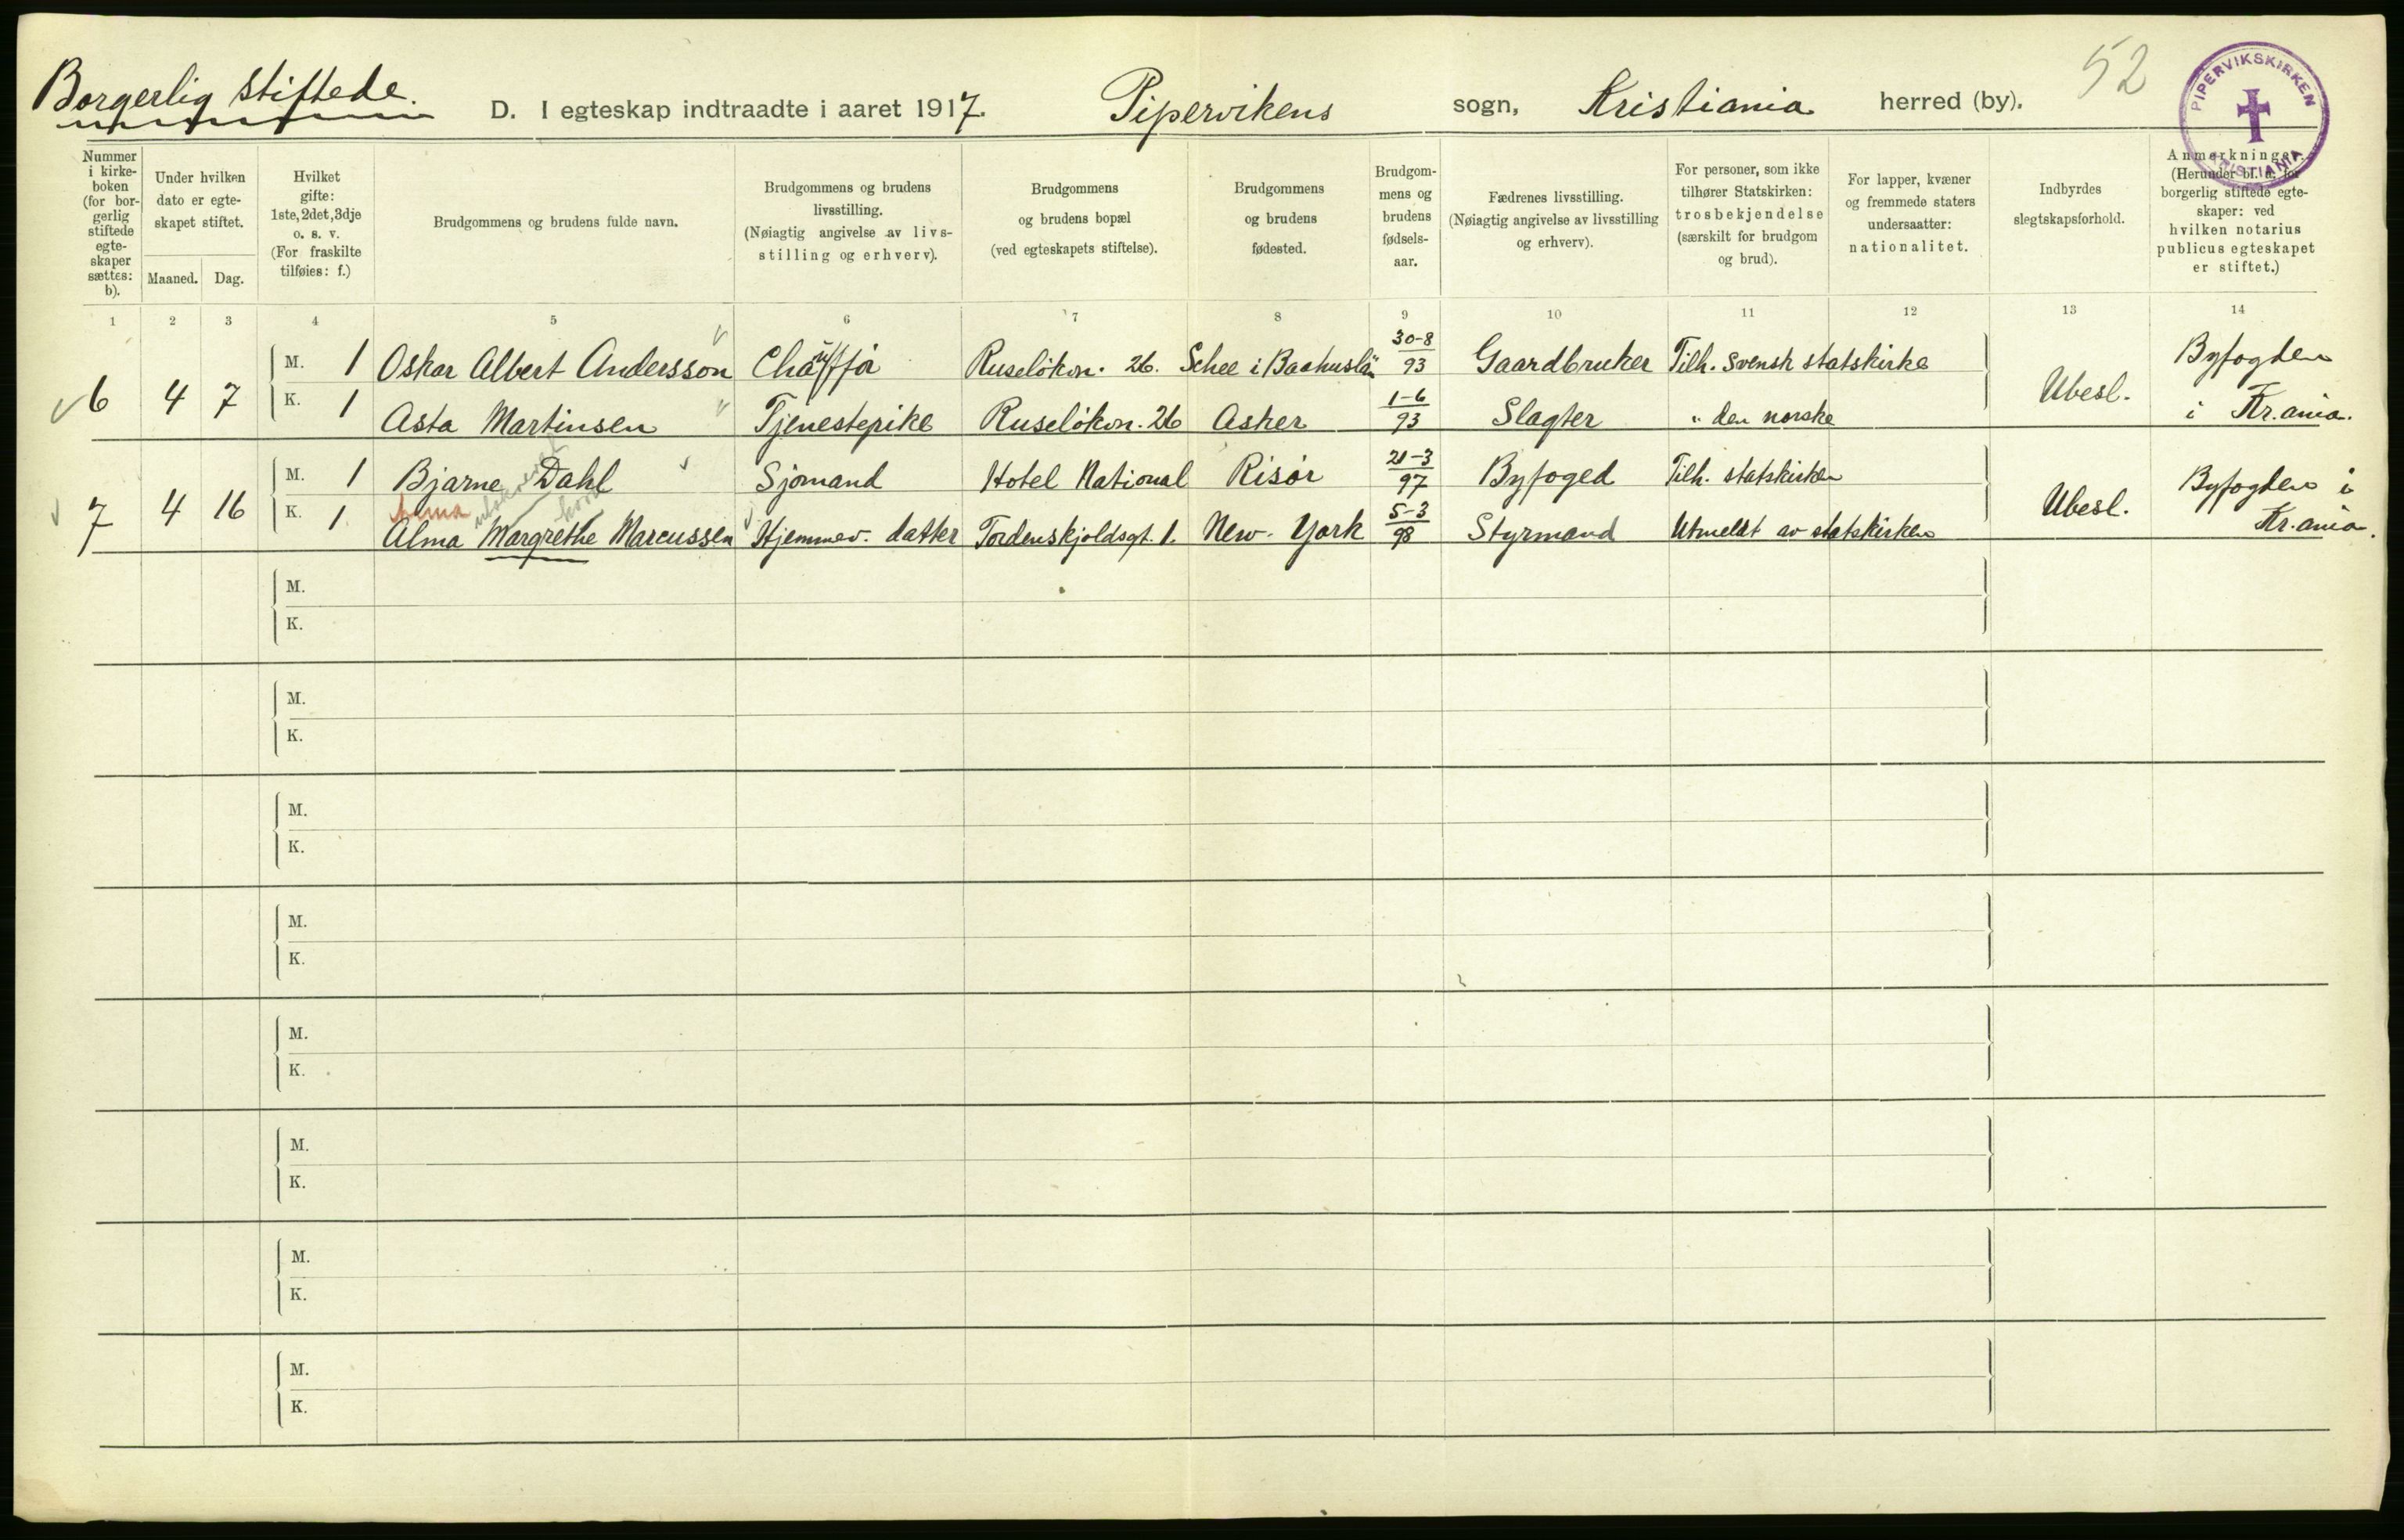 Borgerlig stiftede.
D. I egteskap indtraadte i aaret 1917. Pipervikens sogn, Kristiania herred (by).
52
PIPERVIKSKIRKEN
KRISTIANIA
Nummer i kirke- boken (for bor- gerlig stiftede egte- skaper sættes: b).
Under hvilken dato er egte- skapet stiftet.
Maaned. Dag.
Hvilket gifte: 1ste, 2det, 3dje o. s. v. (For fraskilte tilføies: f.)
Brudgommens og brudens fulde navn.
Brudgommens og brudens livsstilling. (Nøiagtig angivelse av livs- stilling og erhverv).
Brudgommens og brudens bopæl (ved egteskapets stiftelse).
Brudgommens og brudens fødested.
Brudgom- mens og brudens fødsels- aar.
Fædrenes livsstilling. (Nøiagtig angivelse av livsstilling og erhverv).
For personer, som ikke tilhører Statskirken: trosbekjendelse (særskilt for brudgom og brud).
For lapper, kvæner og fremmede staters undersaatter: nationalitet.
Indbyrdes slegtskapsforhold.
Anmerkninger. (Herunder bl. a. for borgerlig stiftede egte- skaper: ved hvilken notarius publicus egteskapet er stiftet.)
1 2 3 4 5 6 7 8 9 10 11 12 13 14
6 4 7 M. 1 Oskar Albert Andersson Chauffør Ruseløkvn. 26. Schee i Baahuslän 30-8 93 Gaardbruker Tilh. svensk statskirke Ubesl. Byfogden i Kr.ania.
K. 1 Asta Martinsen Tjenestepike Ruseløkvn. 26 Asker 1-6 93 Slagter " den norske
7 4 16 M. 1 Bjarne Dahl Sjømand Hotel National Risør 21-3 97 Byfoged Tilh. statskirken Ubesl. Byfogden i Kr.ania.
K. 1 Alma Margrethe Marcussen Hjemmev. datter Tordenskjoldsgt. 1. New-York 5-3 98 Styrmand Utmeldt av statskirken
M.
K.
M.
K.
M.
K.
M.
K.
M.
K.
M.
K.
M.
K.
M.
K.